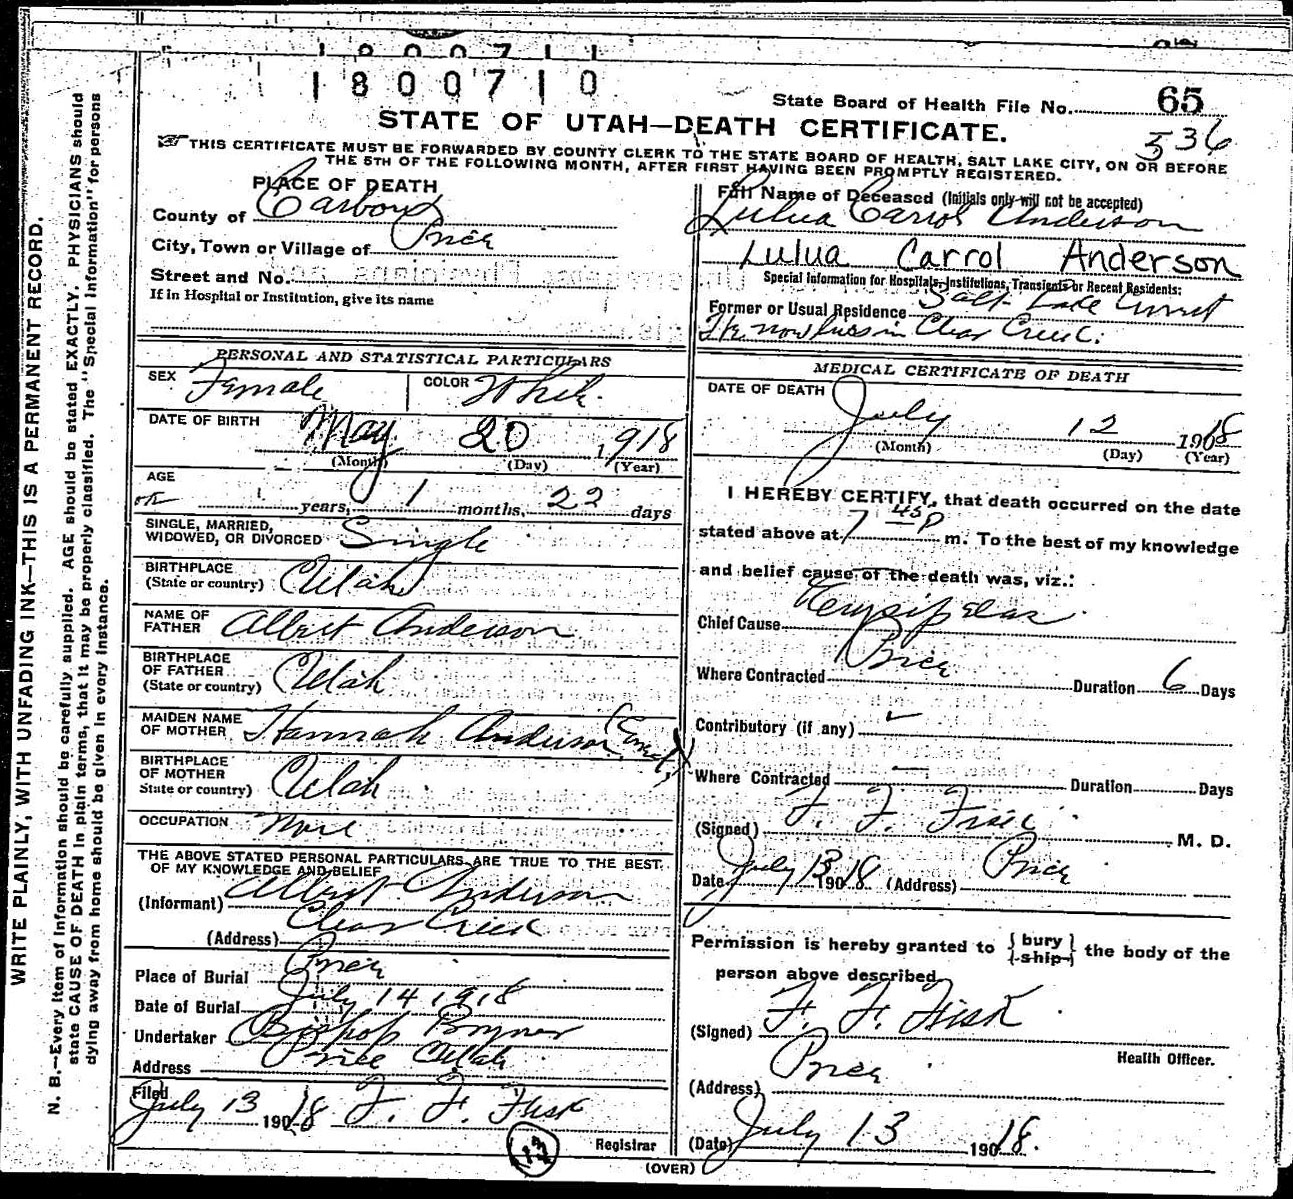 1800711
1800710
State Board of Health File No. 65
536
STATE OF UTAH—DEATH CERTIFICATE.
THIS CERTIFICATE MUST BE FORWARDED BY COUNTY CLERK TO THE STATE BOARD OF HEALTH, SALT LAKE CITY, ON OR BEFORE
THE 5TH OF THE FOLLOWING MONTH, AFTER FIRST HAVING BEEN PROMPTLY REGISTERED.
PLACE OF DEATH
County of Carbon
City, Town or Village of Price
Street and No.
If in Hospital or Institution, give its name
Full Name of Deceased (Initials only will not be accepted)
Lulua Carrol Anderson
Lulua Carrol Anderson
Special Information for Hospitals, Institutions, Transients or Recent Residents:
Former or Usual Residence Salt Lake
now lives in Clear Creek.
PERSONAL AND STATISTICAL PARTICULARS
SEX Female COLOR White.
DATE OF BIRTH May 20 1918
(Month) (Day) (Year)
AGE
years, 1 months, 22 days
SINGLE, MARRIED,
WIDOWED, OR DIVORCED Single
BIRTHPLACE
(State or country) Utah
NAME OF
FATHER Albert Anderson
BIRTHPLACE
OF FATHER
(State or country) Utah
MAIDEN NAME
OF MOTHER Hannah Anderson
BIRTHPLACE
OF MOTHER
State or country) Utah
OCCUPATION None
THE ABOVE STATED PERSONAL PARTICULARS ARE TRUE TO THE BEST
OF MY KNOWLEDGE AND BELIEF
(Informant) Albert Anderson
(Address) Clear Creek
Place of Burial Price
Date of Burial July 14 1918
Undertaker Bishop Bryner
Address Price Utah
Filed
July 13 1918 F. F. Fisk
Registrar
MEDICAL CERTIFICATE OF DEATH
DATE OF DEATH
July 12 1908
(Month) (Day) (Year)
I HEREBY CERTIFY, that death occurred on the date
stated above at 7 45 P m. To the best of my knowledge
and belief cause of the death was, viz.:
Chief Cause Erysipelas
Where Contracted Price Duration 6 Days
Contributory (if any)
Where Contracted Duration Days
(Signed) F. F. Fisk M. D.
Date July 13 1908 (Address) Price
Permission is hereby granted to { bury } the body of the
{ ship }
person above described
(Signed) F. F. Fisk
Health Officer.
(Address) Price
(Date) July 13 1908.
(OVER)
WRITE PLAINLY, WITH UNFADING INK—THIS IS A PERMANENT RECORD.
N. B.—Every item of Information should be carefully supplied. AGE should be stated EXACTLY. PHYSICIANS should
state CAUSE OF DEATH in plain terms, that it may be properly classified. The "Special Information" for persons
dying away from home should be given in every instance.